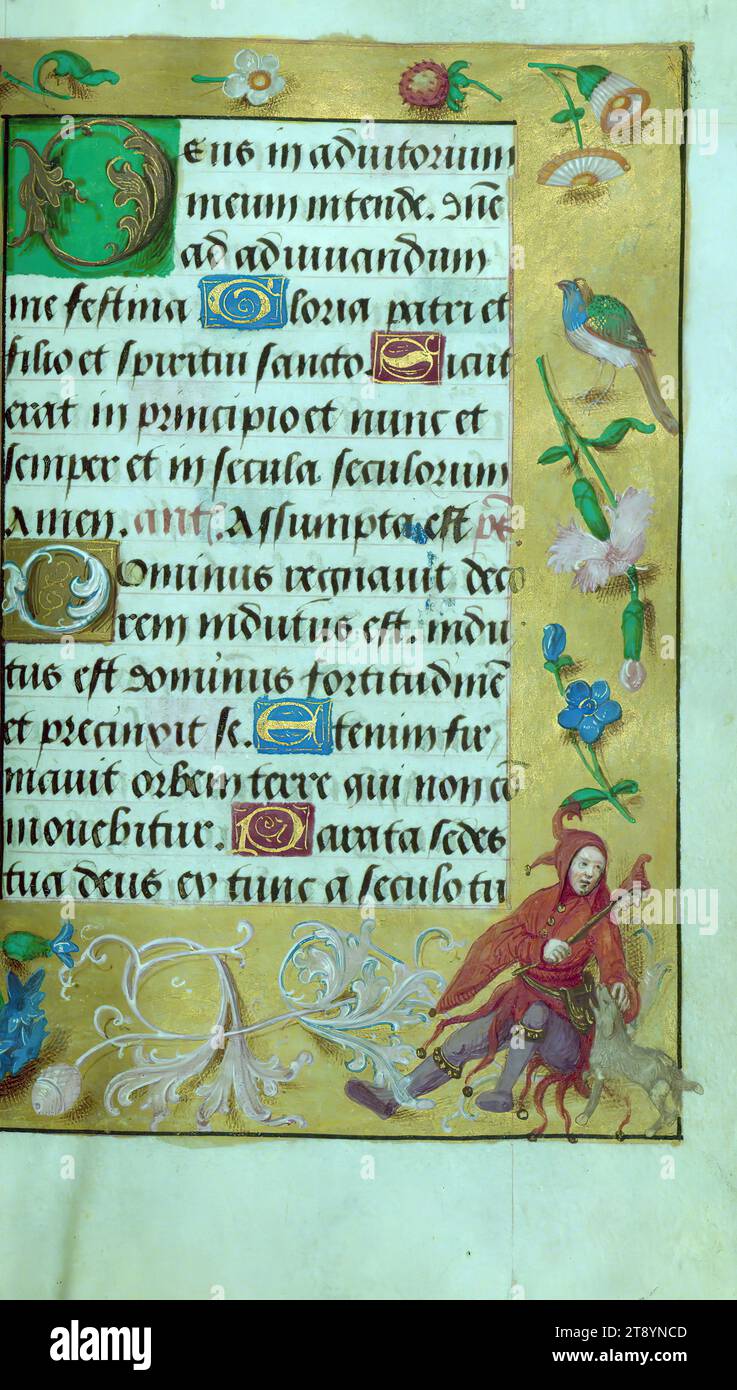 Deus in adiutorium
meum intende. Dn̄e
ad adiuuandum
me festina Gloria patri et
filio et spiritui sancto. Sicut
erat in principio et nunc et
semper et in secula seculorum
Amen. ant. Assumpta est
Dominus regnauit deco
rem indutus est. indu
tus est dominus fortitudinē
et precinxit se. Etenim fir
mauit orbem terre qui non cō
mouebitur. Parata sedes
tua deus ex tunc a seculo tu
alamy
Image ID: 2T8YNCD
www.alamy.com